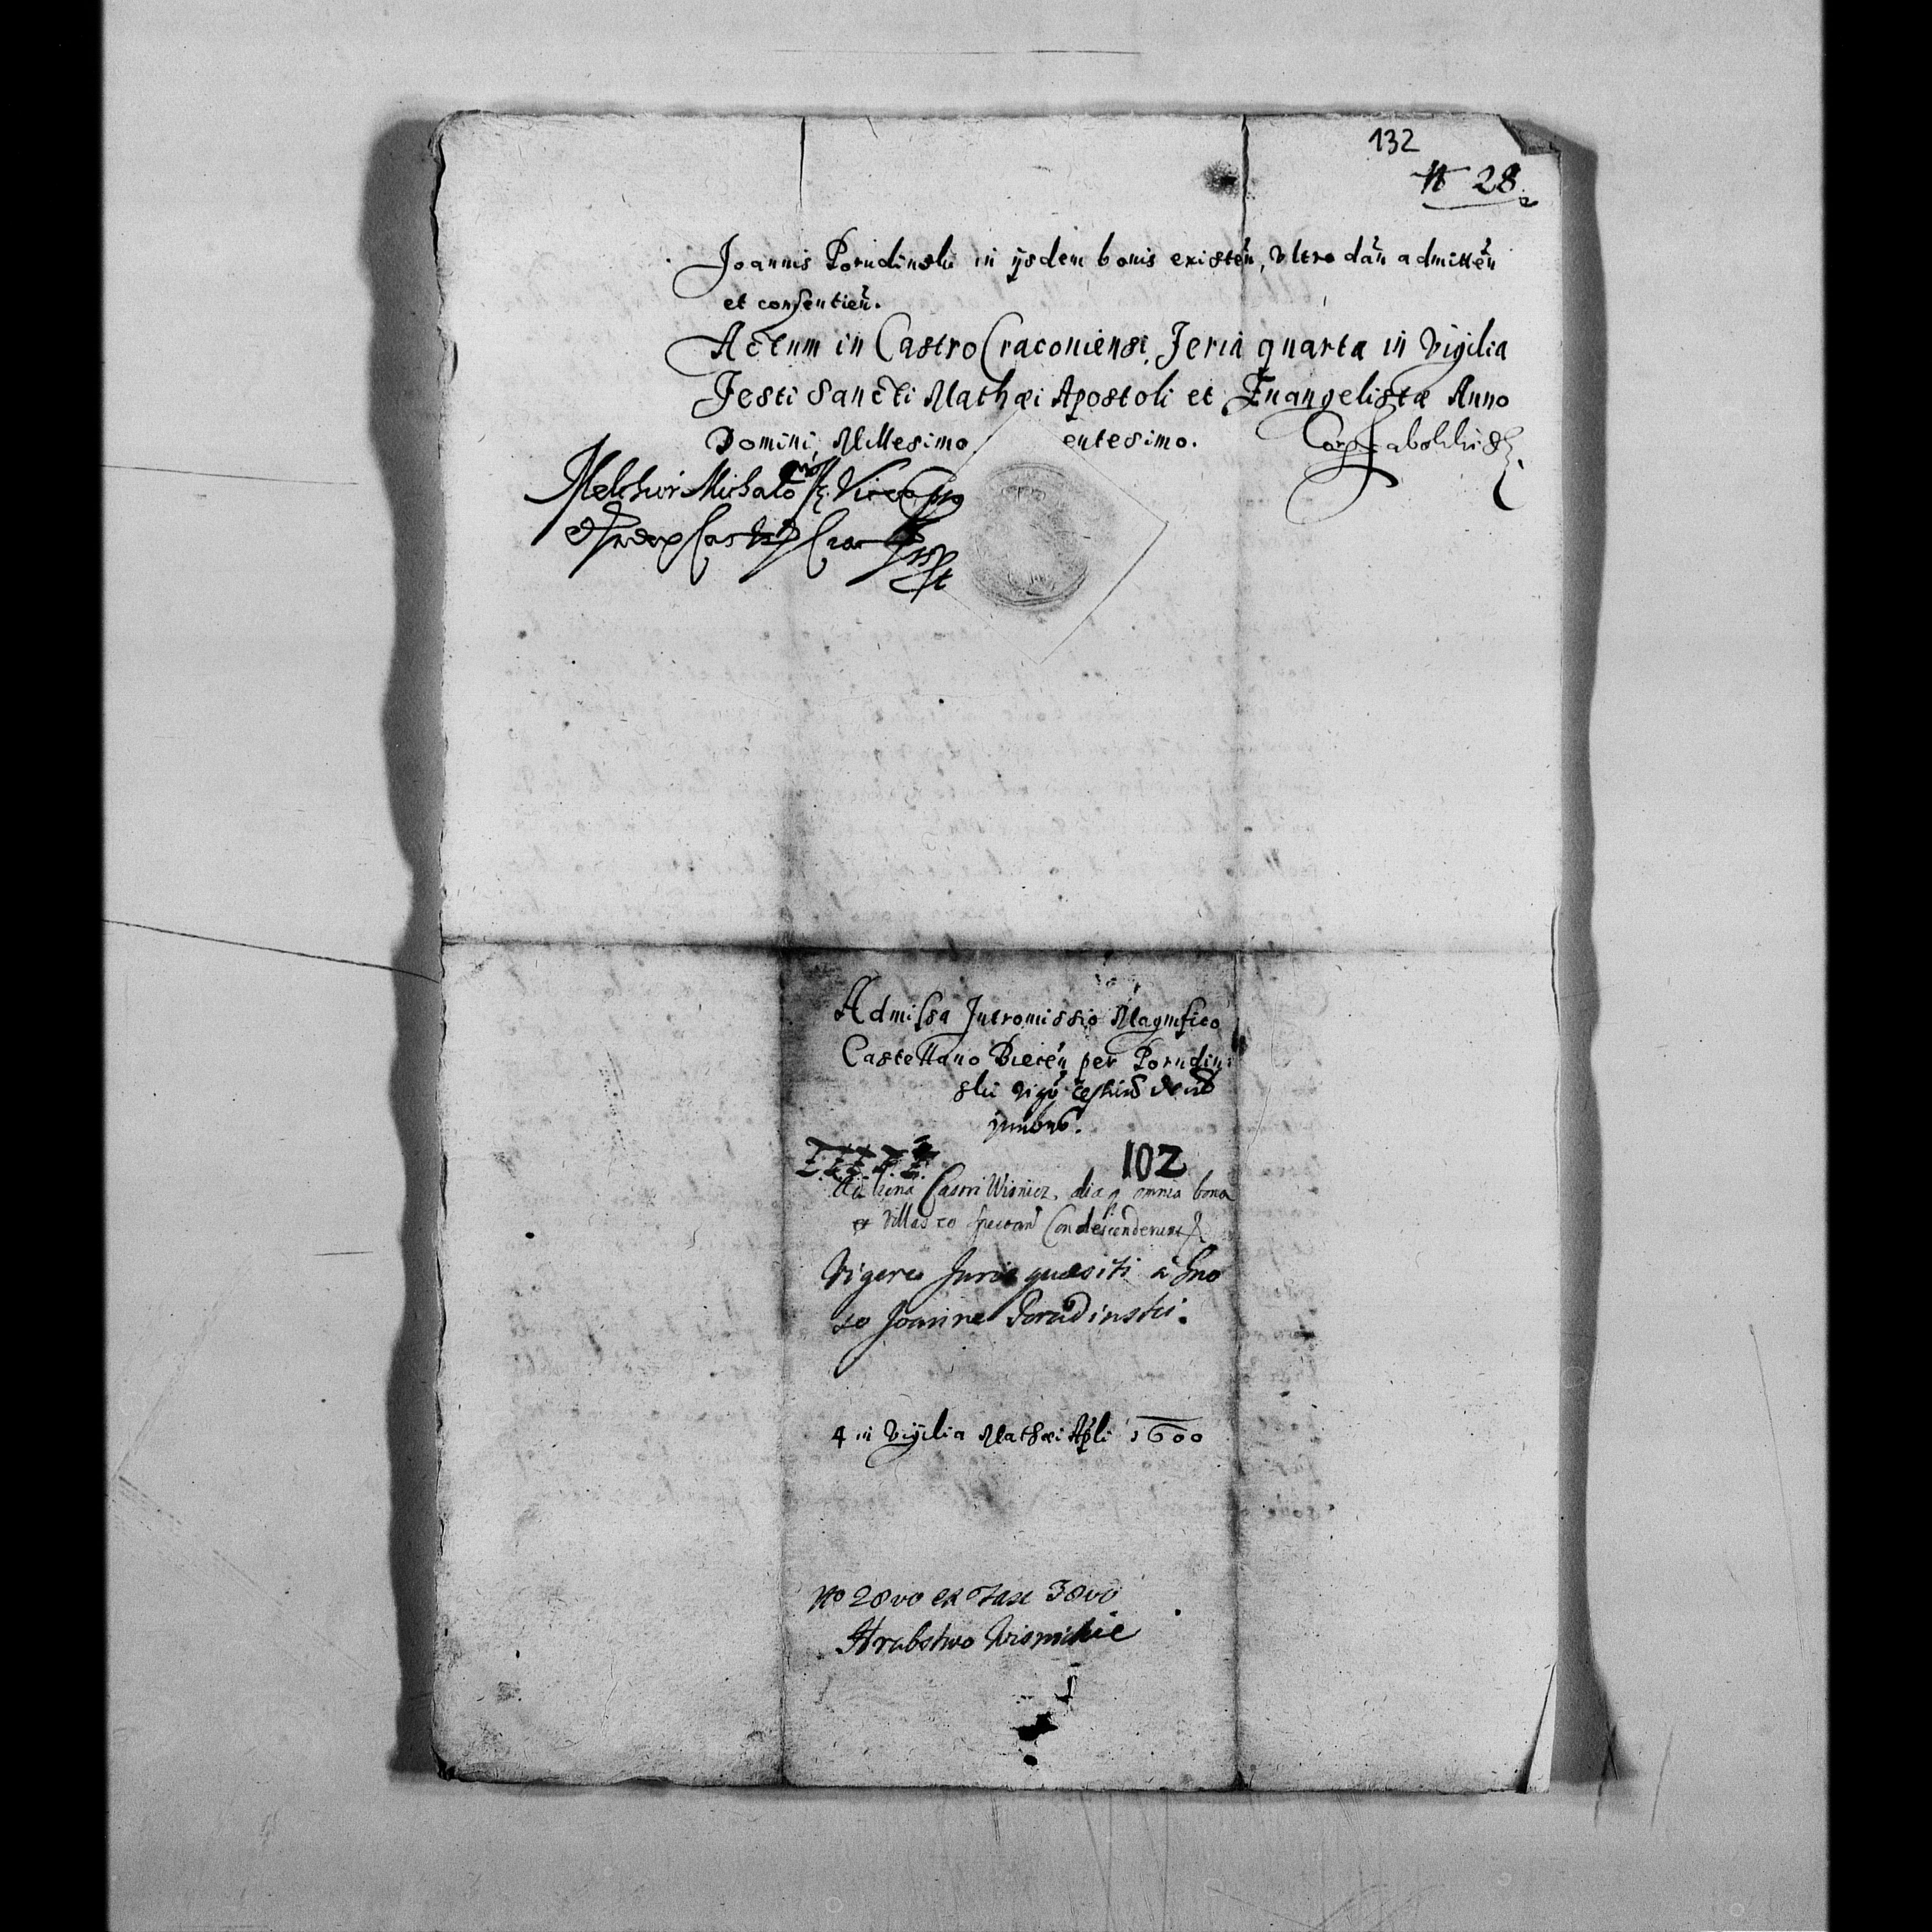 132
N 28
Joannis Porudinski in ijsdem bonis existen̄, ultro dan̄ admitten̄
et consentien̄.
Actum in Castro Cracoviensi, Feria quarta in Vigilia
Festi Sancti Mathæi Apostoli et Euangelistæ Anno
Domini Millesimo entesimo.
Melchior Michalo
Admissa Intromissio Magnifico
Castellano Biecen̄ per Porudin
ski
102
Castri Wisnicz, omnia bona
et Villas eo spectan̄ Condescenderunt
Vigore Juris quæsiti à Gno
so Joanne Porudinski.
4 in Vigilia Mathæi Apli 1600
No 28vo ex Fasc 38vo
Hrabstwo Wisnickie